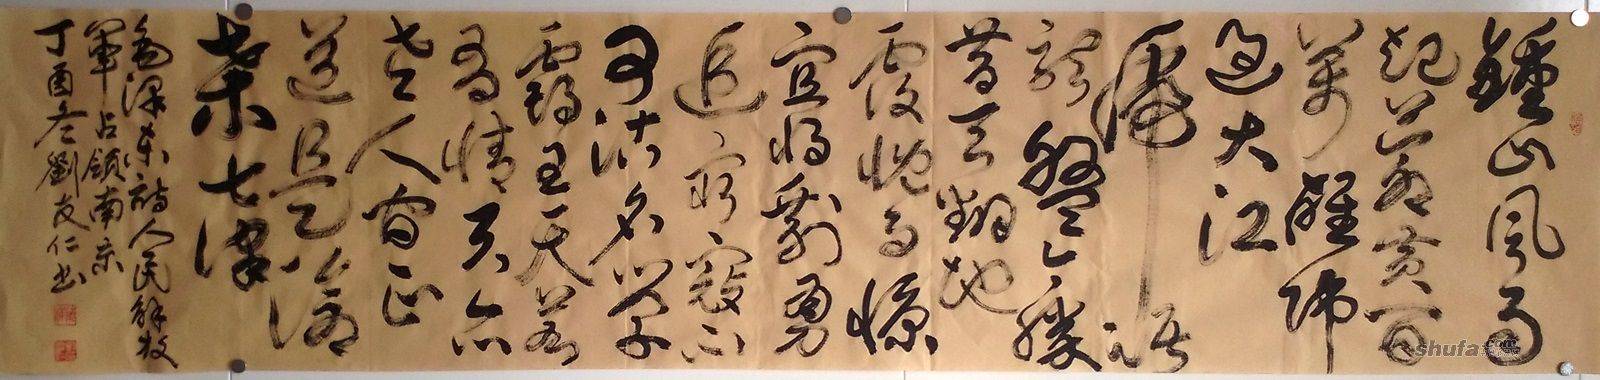 鍾山風雨
起蒼黄百
萬雄師
過大江
虎踞
龍盤今勝
昔天翻地
覆慨而慷
宜將剩勇
追窮寇不
可沽名學
霸王天若
有情天亦
老人間正
道是滄
桑七律
毛澤東詩人民解放
軍占領南京
丁酉冬劉友仁书
shufa